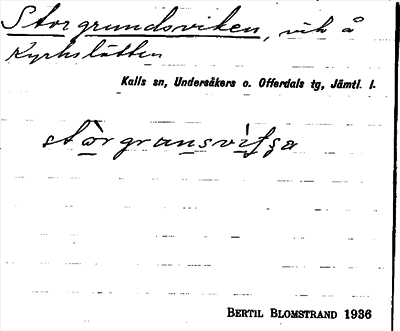 Storgrundsviken, vik å
Kyrkslätten
Kalls sn, Undersåkers o. Offerdals tg, Jämtl. l.
BERTIL BLOMSTRAND 1936